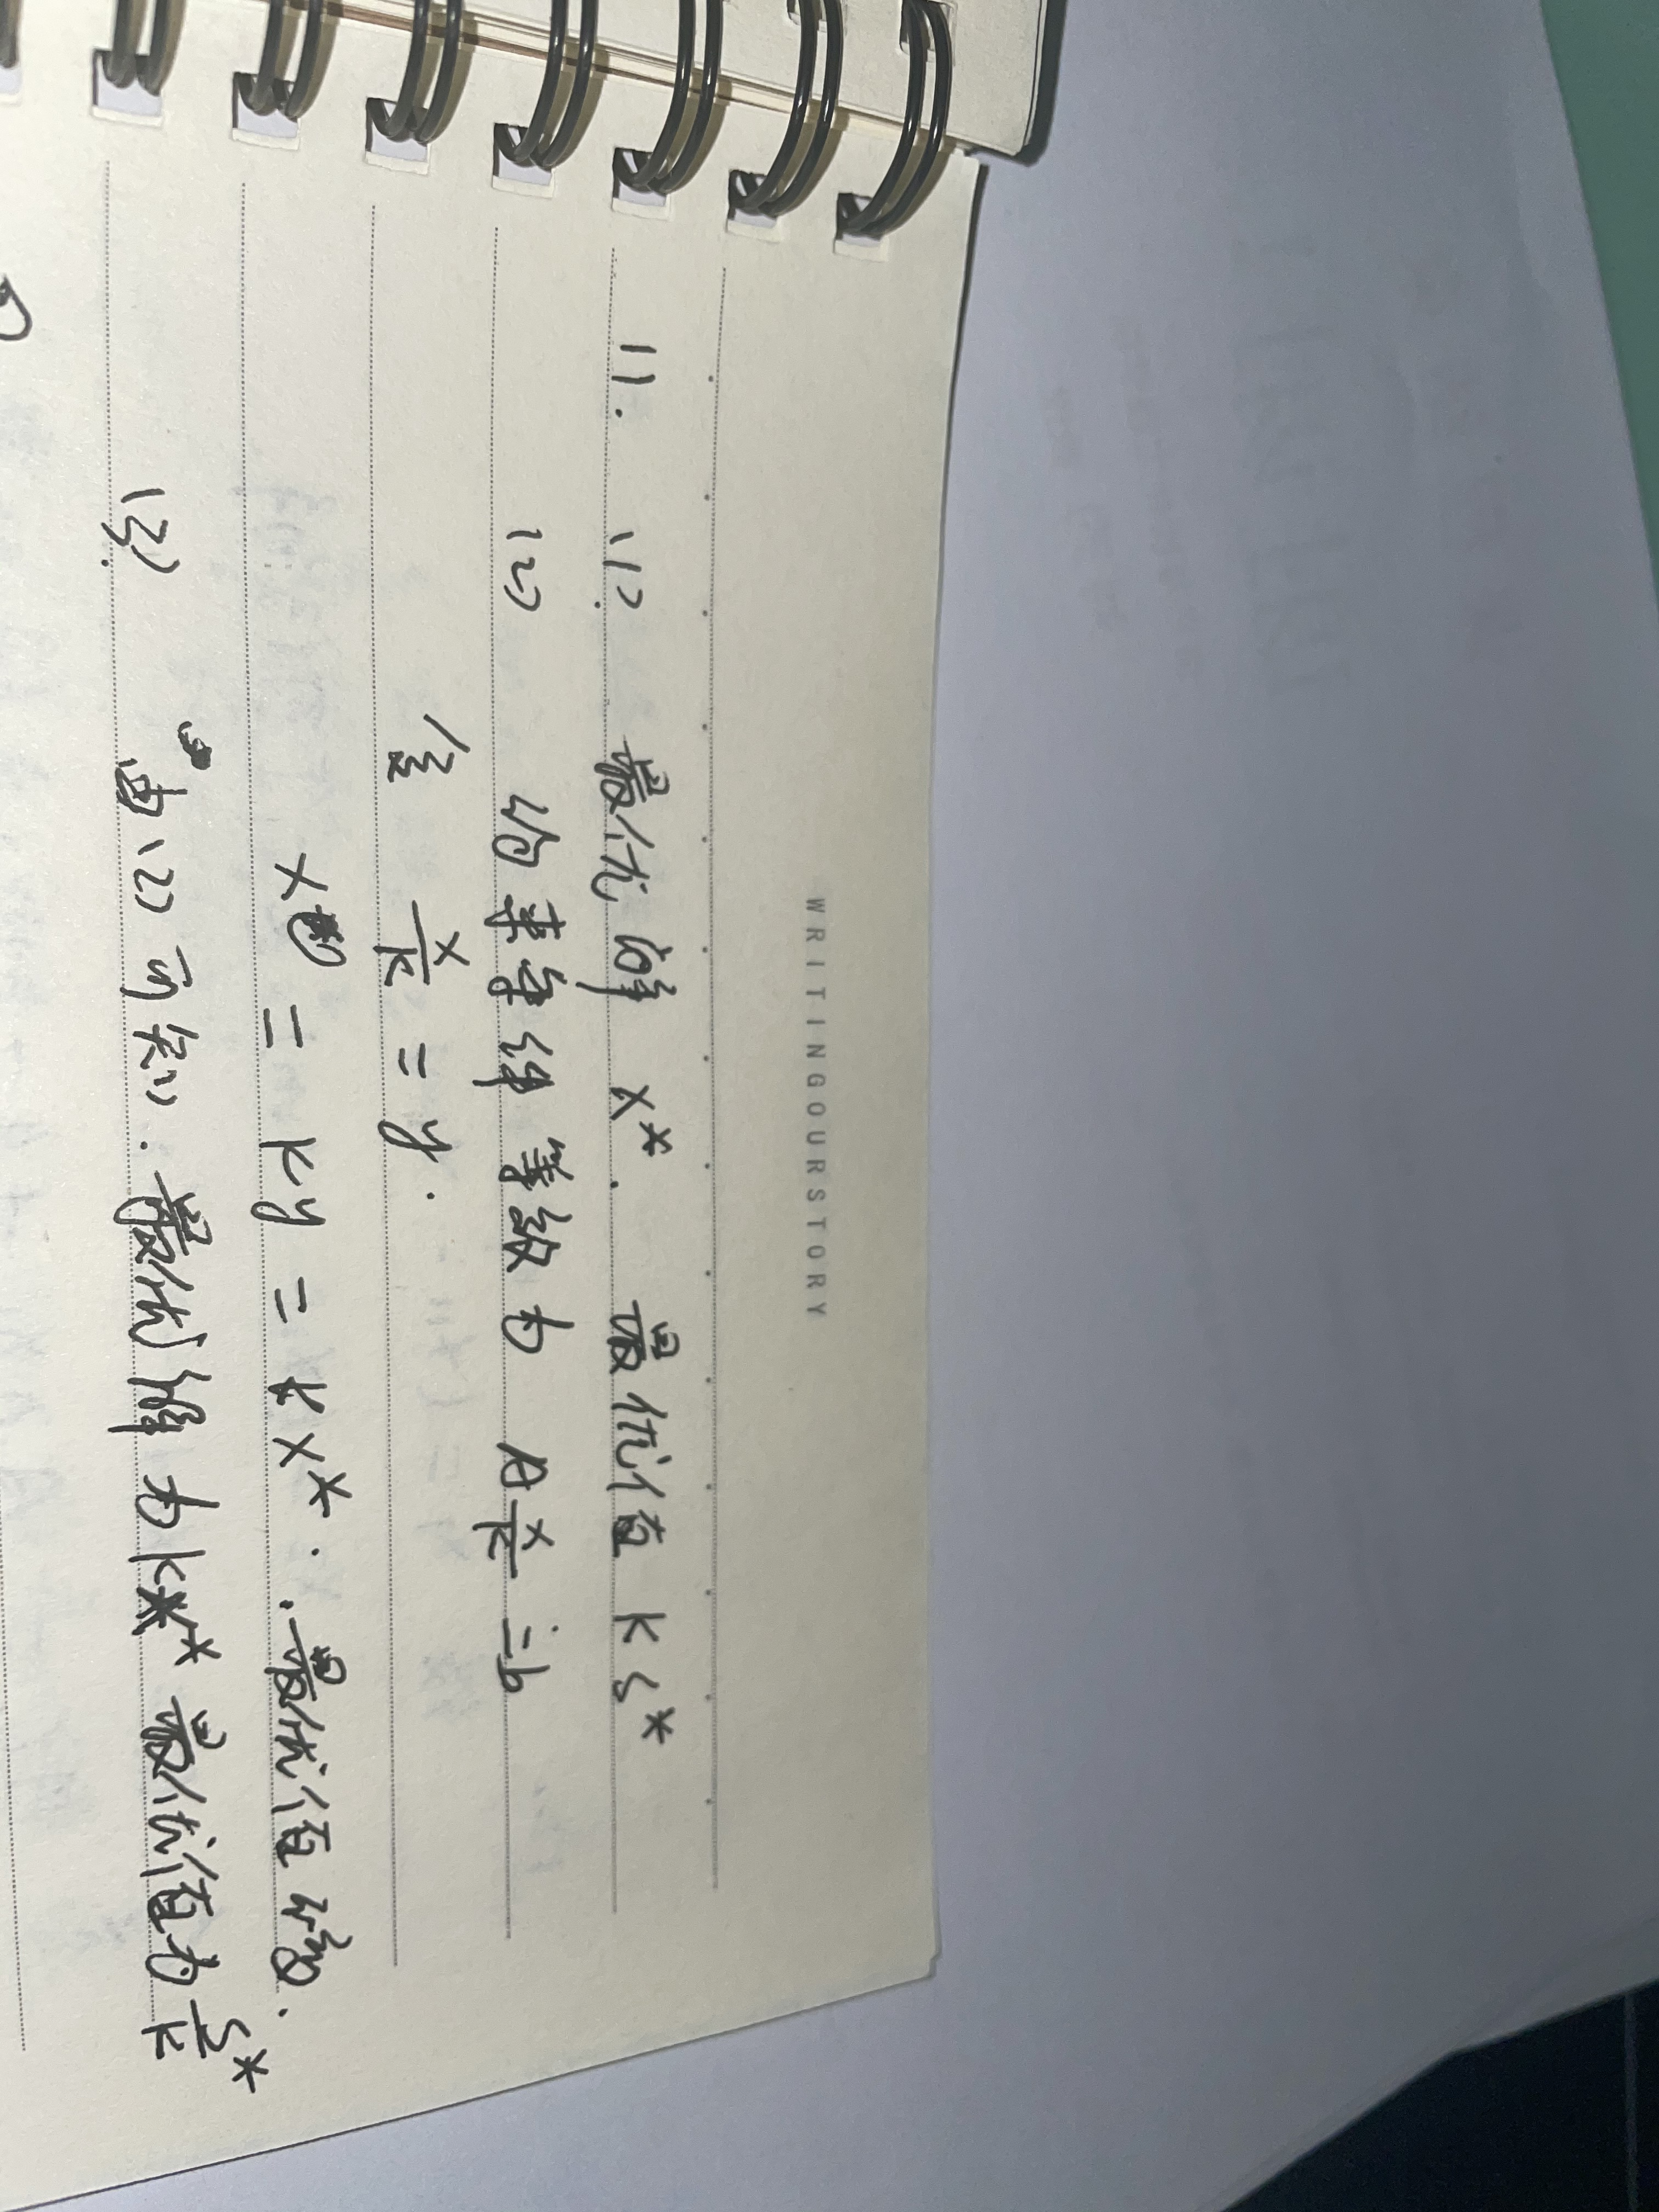 WRITINGOURSTORY
11. (1). 最优解 x*. 最优值 ks*
(2) 约束条件等效为 A x/k = b
令 x/k = y.
x = ky = kx*. 最优值
(3). 由(2)可知. 最优解为kx* 最优值为 s*/k